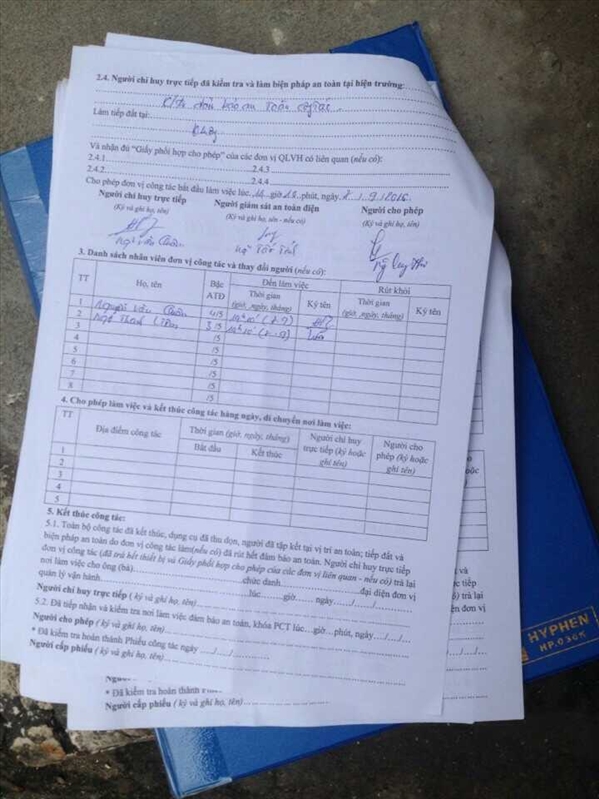 2.4. Người chỉ huy trực tiếp đã kiểm tra và làm biện pháp an toàn tại hiện trường:
đảm bảo an toàn công tác
Làm tiếp đất tại:
Không
Và nhận đủ "Giấy phối hợp cho phép" của các đơn vị QLVH có liên quan (nếu có):
2.4.1 2.4.3
2.4.2 2.4.4
Cho phép đơn vị công tác bắt đầu làm việc lúc giờ phút, ngày
Người chỉ huy trực tiếp Người giám sát an toàn điện Người cho phép
(Ký và ghi họ, tên) (Ký và ghi họ, tên - nếu có) (Ký và ghi họ, tên)
3. Danh sách nhân viên đơn vị công tác và thay đổi người (nếu có):
TT Họ, tên Bậc ATĐ Đến làm việc Rút khỏi
Thời gian (giờ, ngày, tháng) Ký tên Thời gian (giờ, ngày, tháng) Ký tên
1 Nguyễn Văn 4/5
2 3/5
3 /5
4 /5
5 /5
6 /5
7 /5
8 /5
4. Cho phép làm việc và kết thúc công tác hàng ngày, di chuyển nơi làm việc:
TT Địa điểm công tác Thời gian (giờ, ngày, tháng) Người chỉ huy trực tiếp (ký hoặc ghi tên) Người cho phép (ký hoặc ghi tên)
Bắt đầu Kết thúc
1
2
3
4
5
5. Kết thúc công tác:
5.1. Toàn bộ công tác đã kết thúc, dụng cụ đã thu dọn, người đã tập kết tại vị trí an toàn; tiếp đất và
biện pháp an toàn do đơn vị công tác làm(nếu có) đã rút hết đảm bảo an toàn. Người chỉ huy trực tiếp
đơn vị công tác (đã trả hết thiết bị và Giấy phối hợp cho phép của các đơn vị liên quan - nếu có) trả lại
nơi làm việc cho ông (bà) chức danh đại diện đơn vị
quản lý vận hành lúc giờ ngày / /
Người chỉ huy trực tiếp ( ký và ghi họ, tên)
5.2. Đã tiếp nhận và kiểm tra nơi làm việc đảm bảo an toàn, khóa PCT lúc...giờ...phút, ngày.../.../...
Người cho phép ( ký và ghi họ, tên)
* Đã kiểm tra hoàn thành Phiếu công tác ngày / /
Người cấp phiếu ( ký và ghi họ, tên)
* Đã kiểm tra hoàn thành
Người cấp phiếu ( ký và ghi họ, tên)
HYPHEN